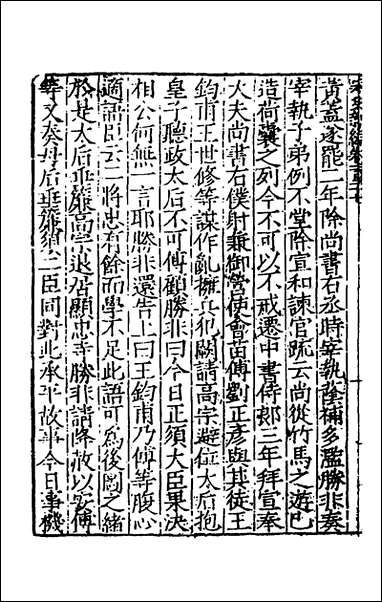 黃蓋遂罷二年除尚書右丞時宰執蔭補多濫勝非奏
宰執子弟例不堂除宣和諫官疏云尚從竹馬之遊已
造荷囊之列今不可以不戒遷中書侍郎三年拜宣奉
大夫尚書右僕射兼御營使會苗傅劉正彥與其徒王
鈞甫王世修等謀作亂擁兵犯闕請高宗避位太后抱
皇子聽政太后不可傅顧勝非曰今日正須大臣果決
相公何無一言耶勝非還告上曰王鈞甫乃傅等腹心
適語臣云二將忠有餘而學不足此語可為後圖之緒
於是太后垂簾高宗退居顯忠寺勝非請降赦以安傅
等又奏母后垂簾須二臣同對此承平故事今日事機